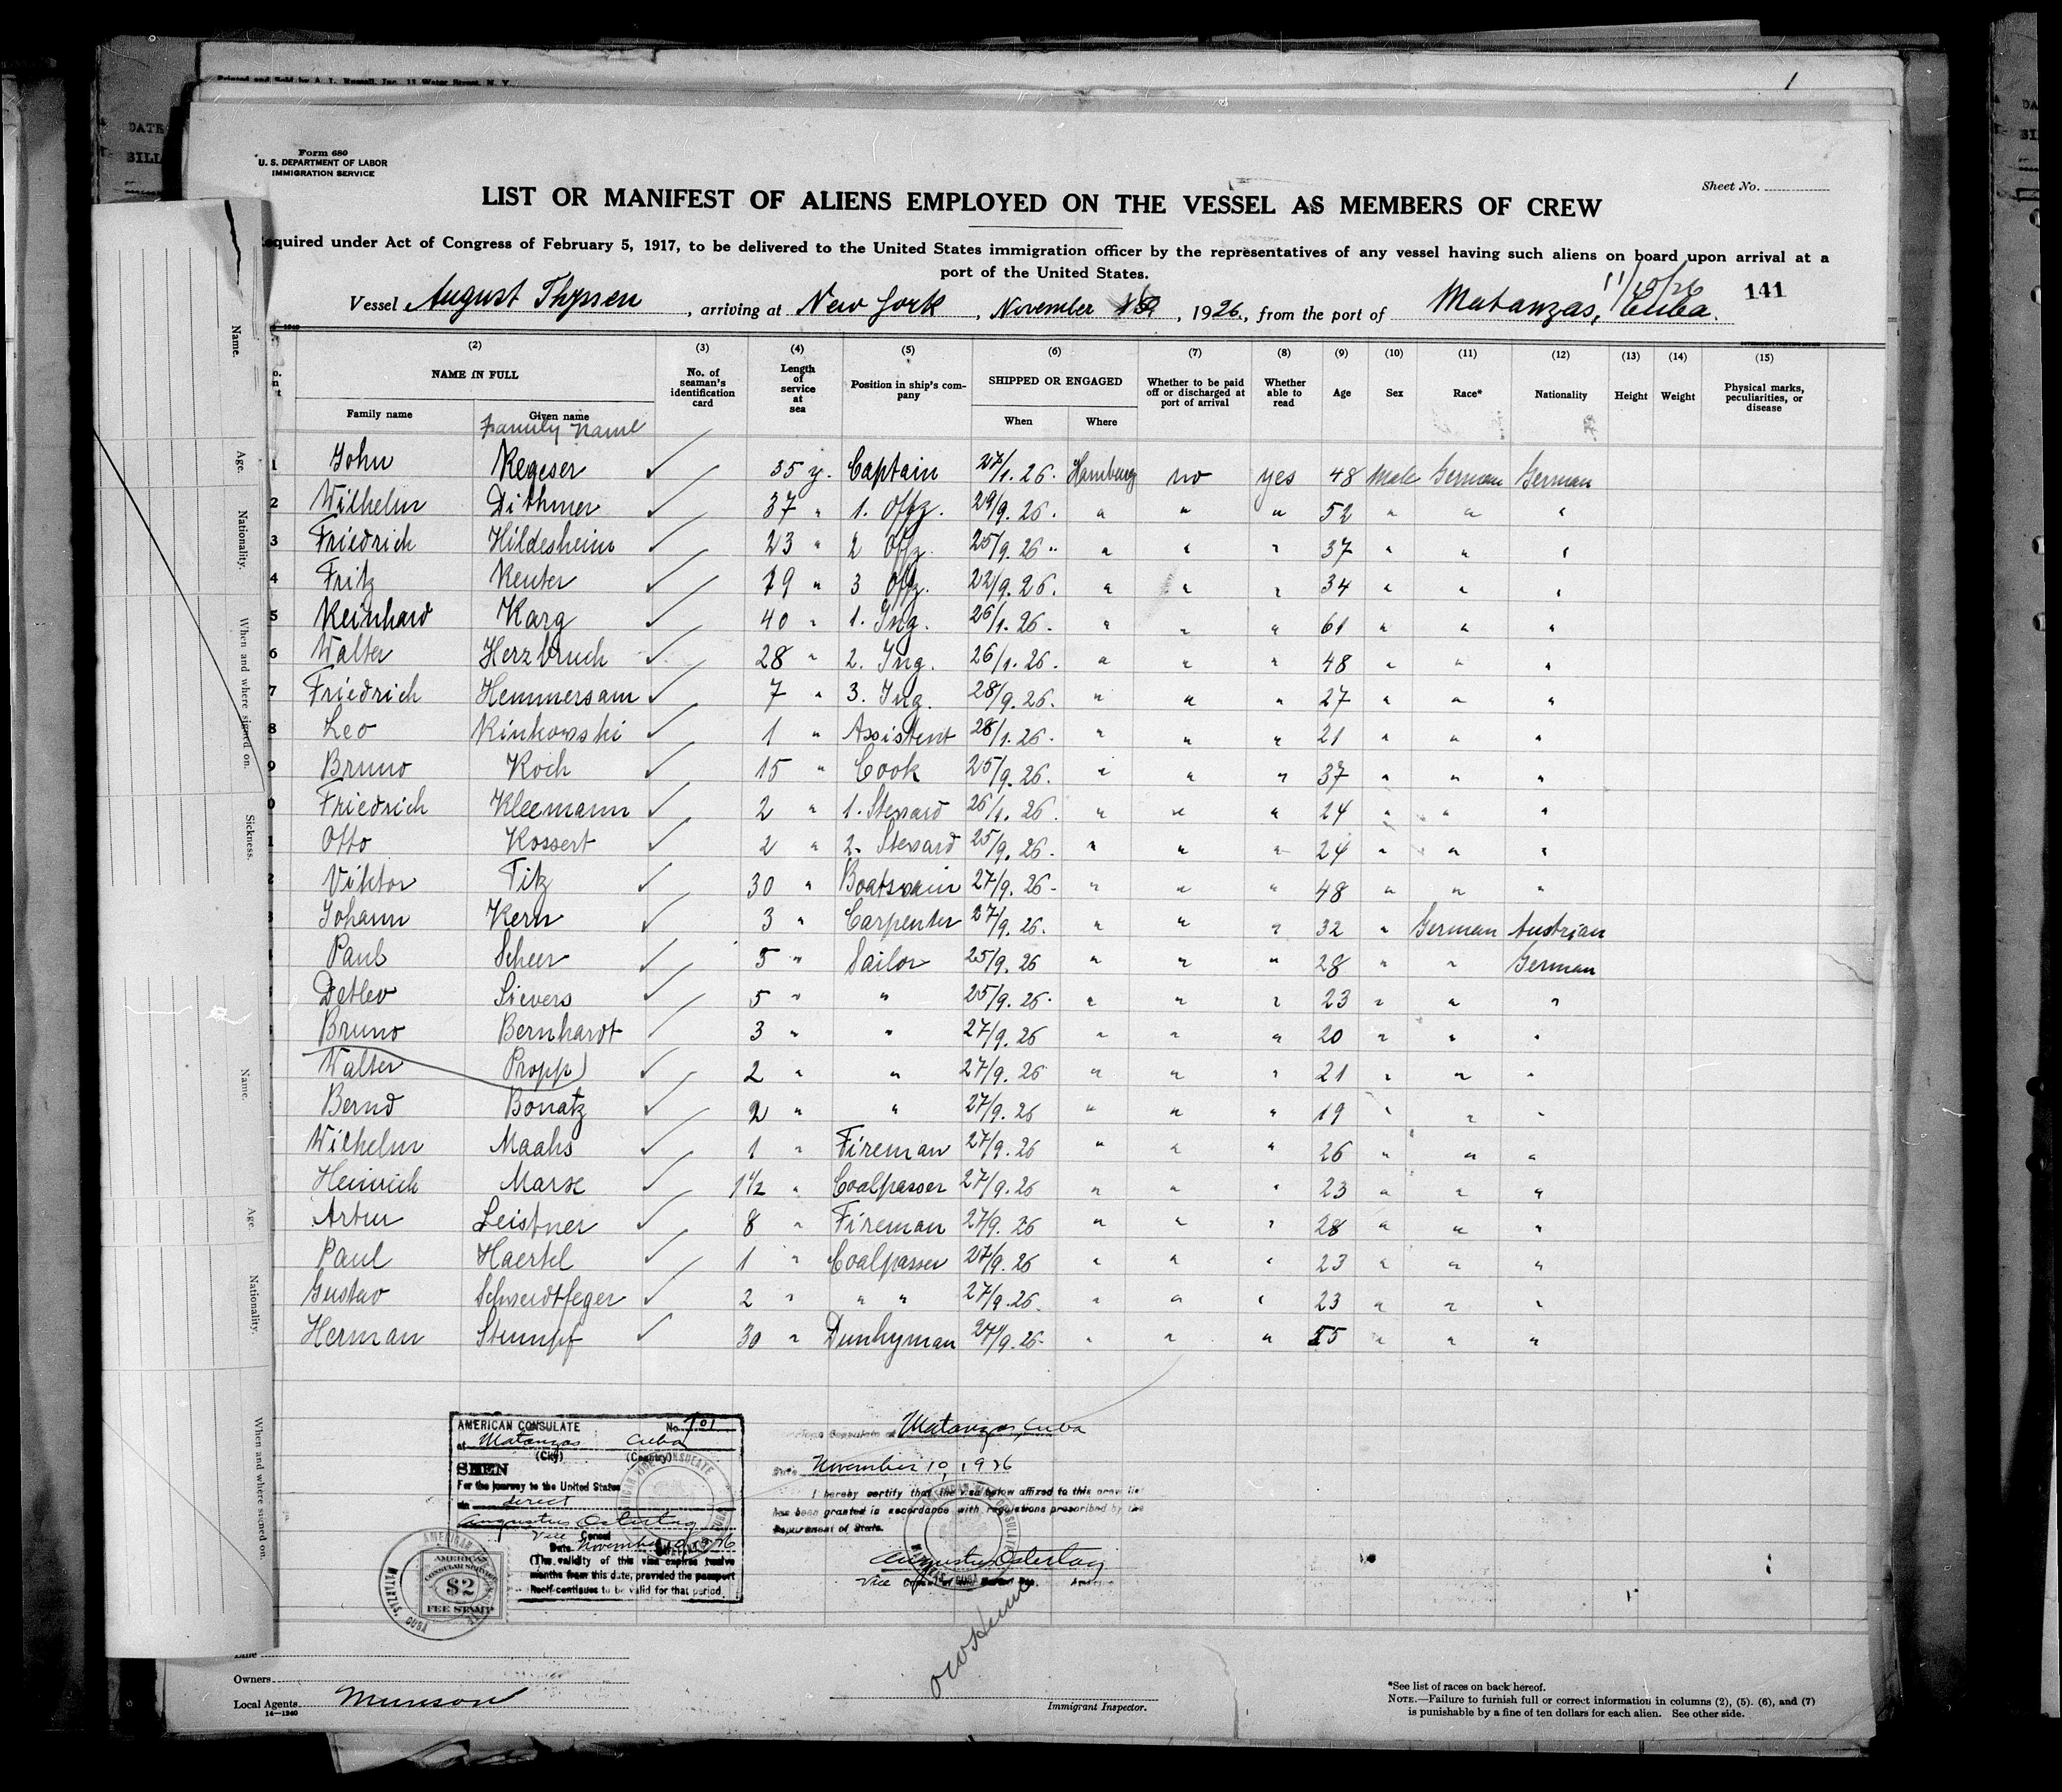 Printed and Sold by A. L. Russell, Inc. 11 Water Street, N. Y.
1
DATE
BILL
Form 680
U. S. DEPARTMENT OF LABOR
IMMIGRATION SERVICE
Sheet No.
LIST OR MANIFEST OF ALIENS EMPLOYED ON THE VESSEL AS MEMBERS OF CREW
equired under Act of Congress of February 5, 1917, to be delivered to the United States immigration officer by the representatives of any vessel having such aliens on board upon arrival at a
port of the United States.
11/15/26
141
Vessel August Thyssen, arriving at New York, November 1926, from the port of Matanzas, Cuba.
(2) (3) (4) (5) (6) (7) (8) (9) (10) (11) (12) (13) (14) (15)
NAME IN FULL No. of seaman's identification card Length of service at sea Position in ship's company SHIPPED OR ENGAGED Whether to be paid off or discharged at port of arrival Whether able to read Age Sex Race* Nationality Height Weight Physical marks, peculiarities, or disease
Family name Given name When Where
Family Name
1 John Regeser ✓ 35 y. Captain 27/1. 26. Hamburg no yes 48 Male German German
2 Wilhelm Dithmer ✓ 37 " 1. Offz. 29/9. 26. " " " 52 " " "
3 Friedrich Hildesheim ✓ 23 " 2 Offz. 25/9. 26 " " " " 37 " " "
4 Fritz Reuter ✓ 19 " 3 Offz. 22/9. 26. " " " 34 " " "
5 Reinhard Karg ✓ 40 " 1. Ing. 26/1. 26. " " " 61 " " "
6 Walter Herzbruch ✓ 28 " 2. Ing. 26/1. 26. " " " 48 " " "
7 Friedrich Hemmersam ✓ 7 " 3. Ing. 28/9. 26. " " " 27 " " "
8 Leo Rinkowski ✓ 1 " Assistent 28/1. 26. " " " 21 " " "
9 Bruno Koch ✓ 15 " Cook 25/9. 26. " " " 37 " " "
0 Friedrich Kleemann ✓ 2 " 1. Steward 26/1. 26. " " " 24 " " "
1 Otto Kossert ✓ 2 " 2. Steward 25/9. 26. " " " 24 " " "
2 Viktor Titz ✓ 30 " Boatswain 27/9. 26. " " " 48 " " "
3 Johann Kern ✓ 3 " Carpenter 27/9. 26. " " " 32 " German Austrian
Paul Scheer ✓ 5 " Sailor 25/9. 26 " " " 28 " " German
Detlev Sievers ✓ 5 " " 25/9. 26. " " " 23 " " "
Bruno Bernhardt ✓ 3 " " 27/9. 26 " " " 20 " " "
Walter Propp ✓ 2 " " 27/9. 26 " " " 21 " " "
Bernd Bonatz ✓ 2 " " 27/9. 26 " " " 19 " " "
Wilhelm Maahs ✓ 1 " Fireman 27/9. 26 " " " 26 " " "
Heinrich Marse ✓ 1 1/2 " Coalpasser 27/9. 26 " " " 23 " " "
Artur Leistner ✓ 8 " Fireman 27/9. 26 " " " 28 " " "
Paul Haertel ✓ 1 " Coalpasser 27/9. 26 " " " 23 " " "
Gustav Schwerdtfeger ✓ 2 " " " 27/9. 26. " " " 23 " " "
Herman Stumpf ✓ 30 " Dunkyman 27/9. 26. " " " 55 " " "
AMERICAN CONSULATE No. 701
at Matanzas Cuba
(City) (Country)
SEEN
For the journey to the United States
via direct
Augustus Ostertag
Vice Consul
Date November 10 1926
(The validity of this visa expires twelve
months from this date, provided the passport
itself continues to be valid for that period.
AMERICAN
CONSULAR SERVICE
$2
FEE STAMP
MATANZAS, CUBA
Consulate at Matanzas, Cuba
Date November 10, 1926
I hereby certify that the visa below affixed to this crew list
has been granted in accordance with regulations prescribed by the
Department of State.
Augustus Ostertag
Vice Consul
Owners
Local Agents Munson
14—1240
Immigrant Inspector.
*See list of races on back hereof.
NOTE.—Failure to furnish full or correct information in columns (2), (5), (6), and (7)
is punishable by a fine of ten dollars for each alien. See other side.
Name.
Age.
Nationality.
When and where signed on.
Sickness.
Name.
Age.
Nationality.
When and where signed on.